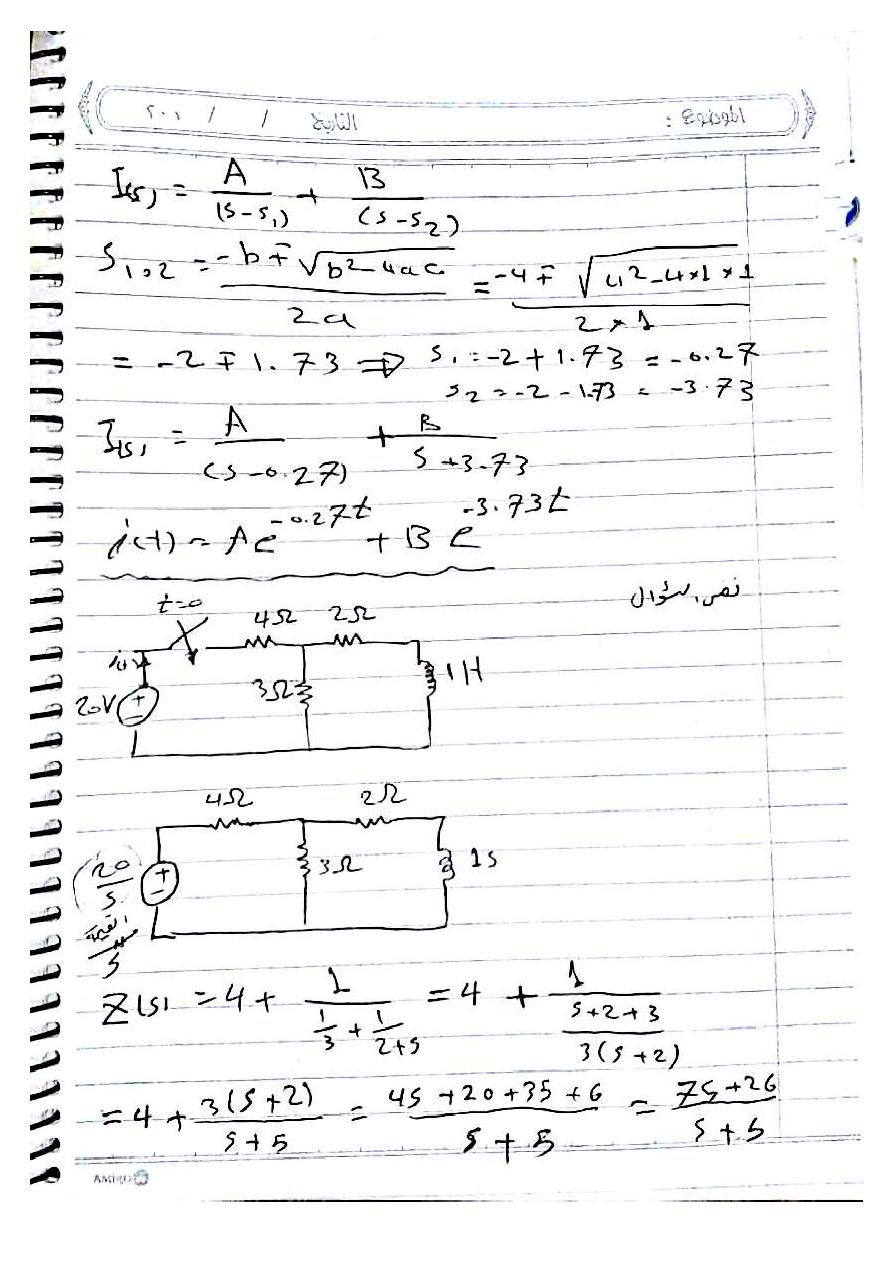 الموضوع :    التاريخ    /    /    ٢٠٠
I(s) = A/(s-s₁) + B/(s-s₂)
S₁,₂ = (-b ∓ √(b²-4ac))/2a = (-4 ∓ √(4²-4×1×1))/(2×1)
= -2 ∓ 1.73 ⇒ s₁ = -2+1.73 = -0.27
s₂ = -2-1.73 = -3.73
I(s) = A/(s-0.27) + B/(s+3.73)
i(t) = Ae^(-0.27t) + Be^(-3.73t)
نص السؤال
t=0 4Ω 2Ω
i(t) 20V + - 3Ω 1H
4Ω 2Ω
20/s + - 3Ω 1s
القيمة/s
Z(s) = 4 + 1/(1/3 + 1/(2+s)) = 4 + 1/((s+2+3)/(3(s+2)))
= 4 + 3(s+2)/(s+5) = (4s+20+3s+6)/(s+5) = (7s+26)/(s+5)